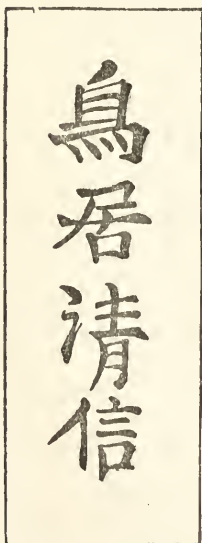 鳥居清信